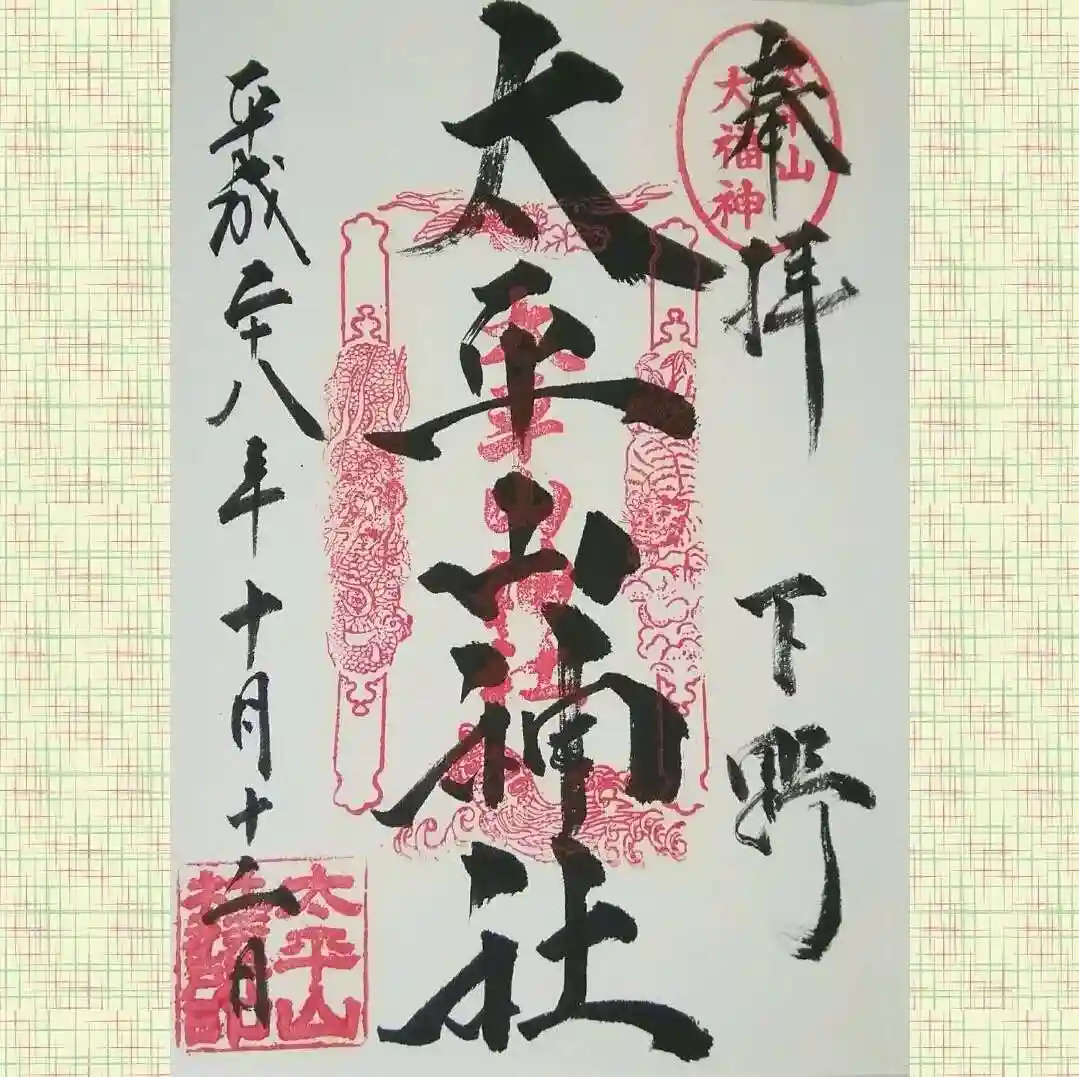 奉拝 下野
太平山
大福神
太平山神社
太平山神社
平成二十八年十月十二日
太平山